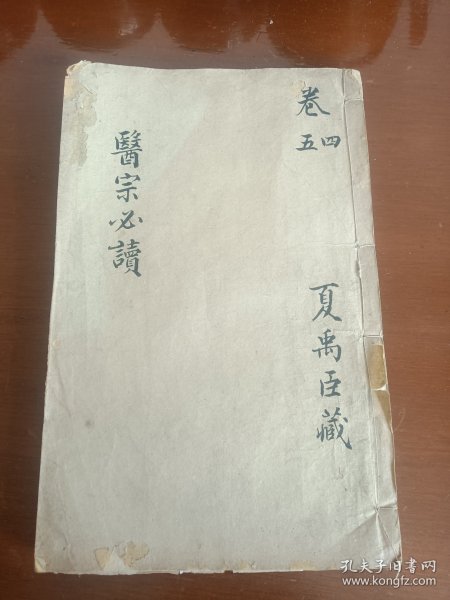 卷
四
五
夏禹臣藏
醫宗必讀
孔夫子旧书网
www.kongfz.com